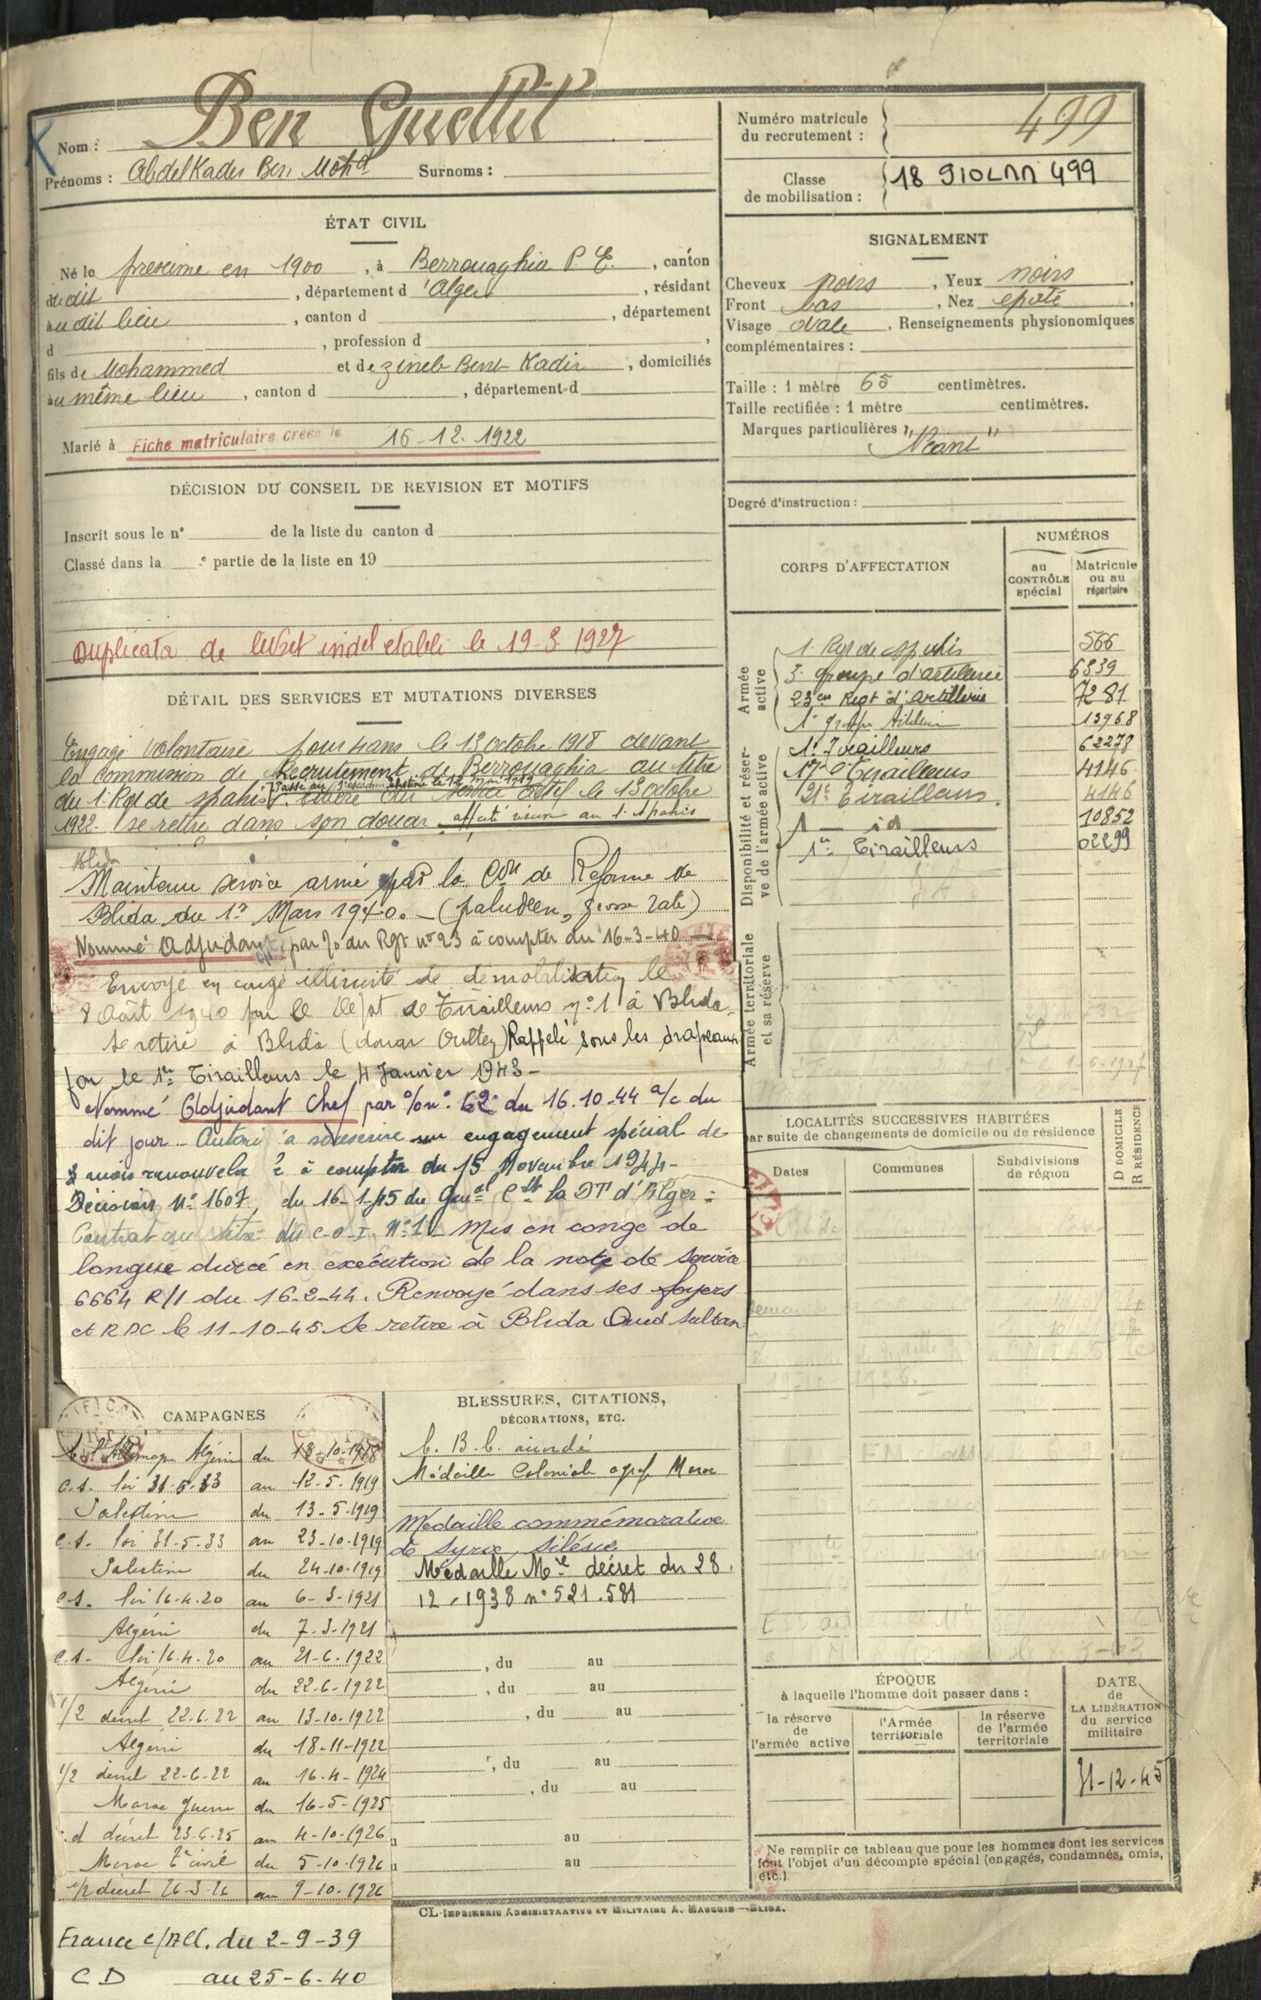 Nom : Ben Guettit
Prénoms : Abdelkader Ben Mohd Surnoms :
Numéro matricule du recrutement : 499
Classe de mobilisation : 18 499
ÉTAT CIVIL
Né le présumé en 1900, à Berrouaghia P. E., canton
dudit, département d'Alger, résidant
audit lieu, canton d , département
d , profession d ,
fils de Mohammed et de Zineb Bent Kadir, domiciliés
au même lieu, canton d , département d
Marié à Fiche matriculaire créée le 16-12-1922
SIGNALEMENT
Cheveux noirs, Yeux noirs,
Front bas, Nez épaté,
Visage ovale, Renseignements physionomiques
complémentaires :
Taille : 1 mètre 65 centimètres.
Taille rectifiée : 1 mètre centimètres.
Marques particulières : "Néant"
Degré d'instruction :
DÉCISION DU CONSEIL DE REVISION ET MOTIFS
Inscrit sous le n° de la liste du canton d
Classé dans la e partie de la liste en 19
Duplicata de livret indel etabli le 19-3 1927
CORPS D'AFFECTATION
NUMÉROS
au CONTRÔLE spécial
Matricule ou au répertoire
Armée active
1 Rgt de spahis 566
3e groupe d'artillerie 6839
23eme Regt d'Artillerie 7281
13968
Disponibilité et réserve de l'armée active
1r Tirailleurs 62278
17e Tirailleurs 4146
21e Tirailleurs. 4146
1 — id — 10852
1er Tirailleurs 02299
Armée territoriale et sa réserve
DÉTAIL DES SERVICES ET MUTATIONS DIVERSES
Engagé volontaire pour 4 ans le 13 octobre 1918 devant
la commission de Recrutement de Berrouaghia au titre
du 1 Rgt de spahis. le 13 octobre
1922. se retire dans son douar. affecté au 1 Spahis
Blida
Maintenu service armé par la Con de Réforme de
Blida du 1er Mars 1940. – (paludéen, grosse rate)
Nommé Adjudant par % du Rgt n° 23 à compter du 16-3-40 —
Envoyé en congé illimité de démobilisation le
8 Août 1940 par le Dépôt de Tirailleurs n° 1 à Blida.
Se retire à Blida (douar ) Rappelé sous les drapeaux
par le 1er Tirailleurs le 4 Janvier 1943 –
Nommé Adjudant Chef par % n° 62 du 16.10.44 a/c du
dit jour – Autorisé à souscrire un engagement spécial de
mois renouvelable à compter du 15 Novembre 1944 –
Décision N° 1607, du 16-1-45 du Gnal Cdt la DT d'Alger :
Contrat au titre du C.O.I. N° 1 – Mis en congé de
longue durée en exécution de la note de service
6664 R/1 du 16-2-44. Renvoyé dans ses foyers
et RDC le 11-10-45 Se retire à Blida Oued Sultan
LOCALITÉS SUCCESSIVES HABITÉES
par suite de changements de domicile ou de résidence
Dates
Communes
Subdivisions de région
D DOMICILE R RÉSIDENCE
CAMPAGNES
Algérie du 13-10-1918
C.S. loi 31-5-33 au 12-5-1919
Palestine du 13-5-1919
C.S. loi 31-5-33 au 23-10-1919
Palestine du 24-10-1919
C.S. loi 16-4-20 au 6-3-1921
Algérie du 7-3-1921
C.S. loi 16-4-20 au 21-6-1922
Algérie du 22-6-1922
1/2 décret 22-6-22 au 13-10-1922
Algérie du 18-11-1922
1/2 décret 22-6-22 au 16-4-1924
Maroc guerre du 16-5-1925
décret 23-6-25 au 4-10-1926
Maroc civil du 5-10-1926
1/2 décret 26-3-26 au 9-10-1926
France C/All. du 2-9-39
CD au 25-6-40
BLESSURES, CITATIONS,
DÉCORATIONS, ETC.
C. B. C. accordé
Médaille Coloniale agrf Maroc
Médaille commémorative
de Syrie, Silésie
Médaille Mre décret du 28.
12.1938 n° 521.581
, du au
, du au
, du au
, du au
, du au
au
au
ÉPOQUE
à laquelle l'homme doit passer dans :
la réserve de l'armée active
l'Armée territoriale
la réserve de l'armée territoriale
DATE de LA LIBÉRATION du service militaire
31-12-45
Ne remplir ce tableau que pour les hommes dont les services
font l'objet d'un décompte spécial (engagés, condamnés, omis,
etc.)
CL-IMPRIMERIE ADMINISTRATIVE ET MILITAIRE A. MAUGUIN — BLIDA.